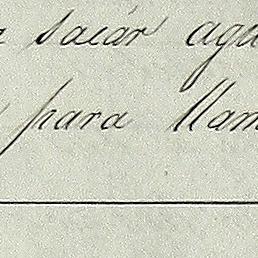 sacár agu
para llam